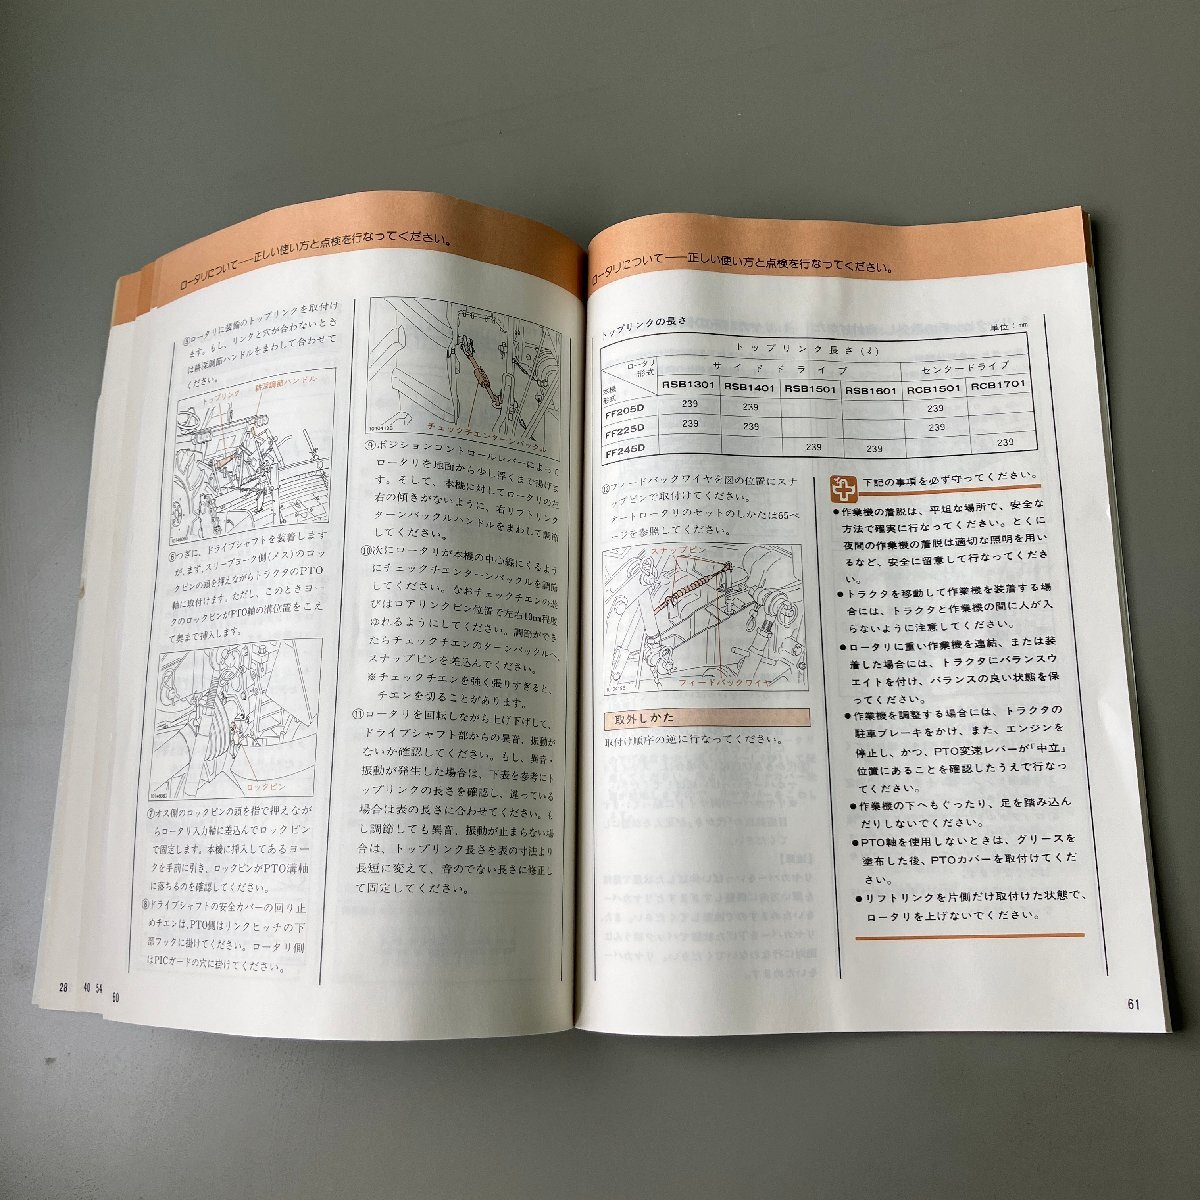 ロータリについて──正しい使い方と点検を行なってください。
⑤ロータリに装備のトップリンクを取付け
ます。もし、リンクと穴が合わないとき
は耕深調節ハンドルをまわして合わせて
ください。
トップリンク
耕深調節ハンドル
⑥つぎに、ドライブシャフトを装着します
が、まず、スリーブヨーク側(メス)のロッ
クピンの頭を押えながらトラクタのPTO
軸に取付けます。ただし、このときヨー
クのロックピンがPTO軸の溝位置をこえ
て奥まで挿入します。
ロックピン
⑦オス側のロックピンの頭を指で押えなが
らロータリ入力軸に差込んでロックピン
で固定します。本機に挿入してあるヨー
クを手前に引き、ロックピンがPTO溝軸
に落ちるのを確認してください。
⑧ドライブシャフトの安全カバーの回り止
めチエンは、PTO側はリンクヒッチの下
部フックに掛けてください。ロータリ側
はPICガードの穴に掛けてください。
チェックチエンターンバックル
⑨ポジションコントロールレバーによって
ロータリを地面から少し浮くまで揚げま
す。そして、本機に対してロータリの左
右の傾きがないように、右リフトリンク
ターンバックルハンドルをまわして調節
してください。
⑩次にロータリが本機の中心線にくるよう
にチェックチエンターンバックルを調節
してください。なおチェックチエンの並
びはロアリンクピン位置で左右10mm程度
ゆれるようにしてください。調節ができ
たらチェックチエンのターンバックルへ
スナップピンを差込んでください。
※チェックチエンを強く張りすぎると、
チエンを切ることがあります。
⑪ロータリを回転しながら上げ下げして、
ドライブシャフト部からの異音、振動が
ないか確認してください。もし、異音・
振動が発生した場合は、下表を参考にト
ップリンクの長さを確認し、違っている
場合は表の長さに合わせてください。も
し調節しても異音、振動が止まらない場
合は、トップリンク長さを表の寸法より
長短に変えて、音のでない長さに修正し
て固定してください。
28 40 54 60
ロータリについて──正しい使い方と点検を行なってください。
トップリンクの長さ
単位:mm
トップリンク長さ(ℓ)
ロータリ形式 サイドドライブ センタードライブ
本機形式 RSB1301 RSB1401 RSB1501 RSB1601 RCB1501 RCB1701
FF205D 239 239 239
FF225D 239 239 239
FF245D 239 239 239
⑫フィードバックワイヤを図の位置にスナ
ップピンで取付けてください。
オートロータリのセットのしかたは65ペ
ージを参照してください。
スナップピン
フィードバックワイヤ
取外しかた
取付け順序の逆に行なってください。
下記の事項を必ず守ってください。
●作業機の着脱は、平坦な場所で、安全な
方法で確実に行なってください。とくに
夜間の作業機の着脱は適切な照明を用い
るなど、安全に留意して行なってくださ
い。
●トラクタを移動して作業機を装着する場
合には、トラクタと作業機の間に人が入
らないように注意してください。
●ロータリに重い作業機を連結、または装
着した場合には、トラクタにバランスウ
エイトを付け、バランスの良い状態を保
ってください。
●作業機を調整する場合には、トラクタの
駐車ブレーキをかけ、また、エンジンを
停止し、かつ、PTO変速レバーが「中立」
位置にあることを確認したうえで行なっ
てください。
●作業機の下へもぐったり、足を踏み込ん
だりしないでください。
●PTO軸を使用しないときは、グリースを
塗布した後、PTOカバーを取付けてくだ
さい。
●リフトリンクを片側だけ取付けた状態で、
ロータリを上げないでください。
61